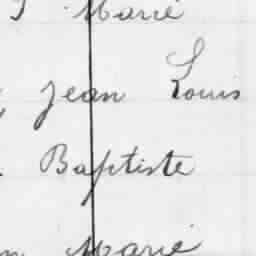 Marie
Jean Louis
Baptiste
Marie